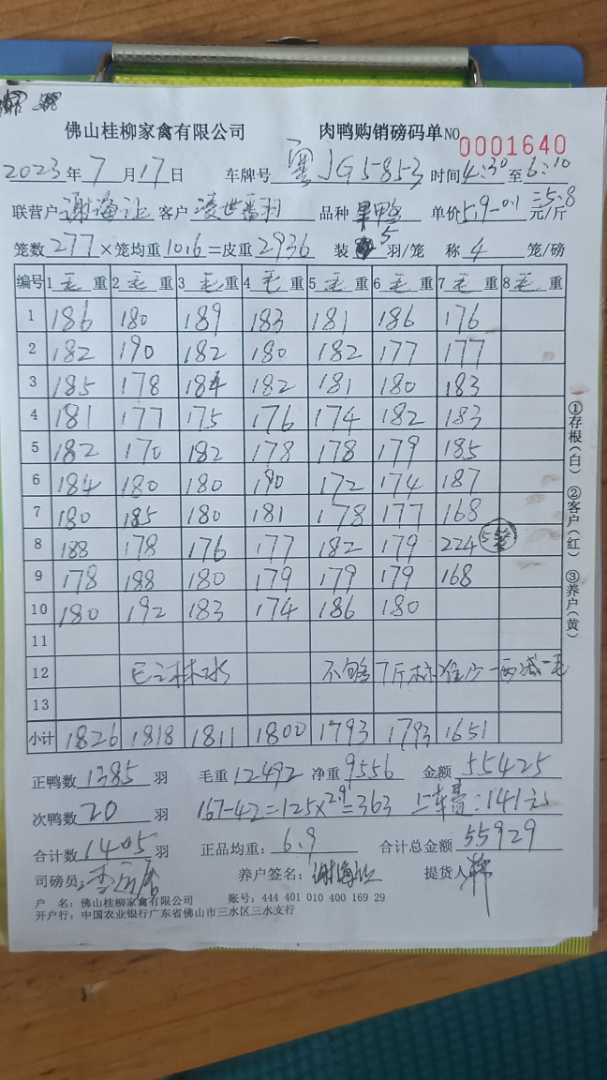 佛山桂柳家禽有限公司 肉鸭购销磅码单 NO 0001640
2023年7月17日 车牌号 粤JG5853 时间4:30至6:10
联营户 谢海 客户 凌世 品种 鸭 单价5.9-0.1=5.8元/斤
笼数277×笼均重10.6=皮重2936 装5羽/笼 称4笼/磅
编号 1毛重 2毛重 3毛重 4毛重 5毛重 6毛重 7毛重 8毛重
1 186 180 189 183 181 186 176
2 182 190 182 180 182 177 177
3 185 178 184 182 181 180 183
4 181 177 175 176 174 182 183
5 182 170 182 178 178 179 185
6 184 180 180 180 172 174 187
7 180 185 180 181 178 177 168
8 188 178 176 177 182 179 224 5笼
9 178 188 180 179 179 179 168
10 180 192 183 174 186 180
11
12 不够7斤标准少一两减一毛
13
小计 1826 1818 1811 1800 1793 1793 1651
①存根(白) ②客户(红) ③养户(黄)
正鸭数1385羽 毛重12492 净重9556 金额55425
次鸭数20羽 167-42=125×2.91=363 上车费:141元
合计数1405羽 正品均重:6.9 合计总金额55929
司磅员: 养户签名:谢海 提货人
户 名:佛山桂柳家禽有限公司 账号:444 401 010 400 169 29
开户行:中国农业银行广东省佛山市三水区三水支行